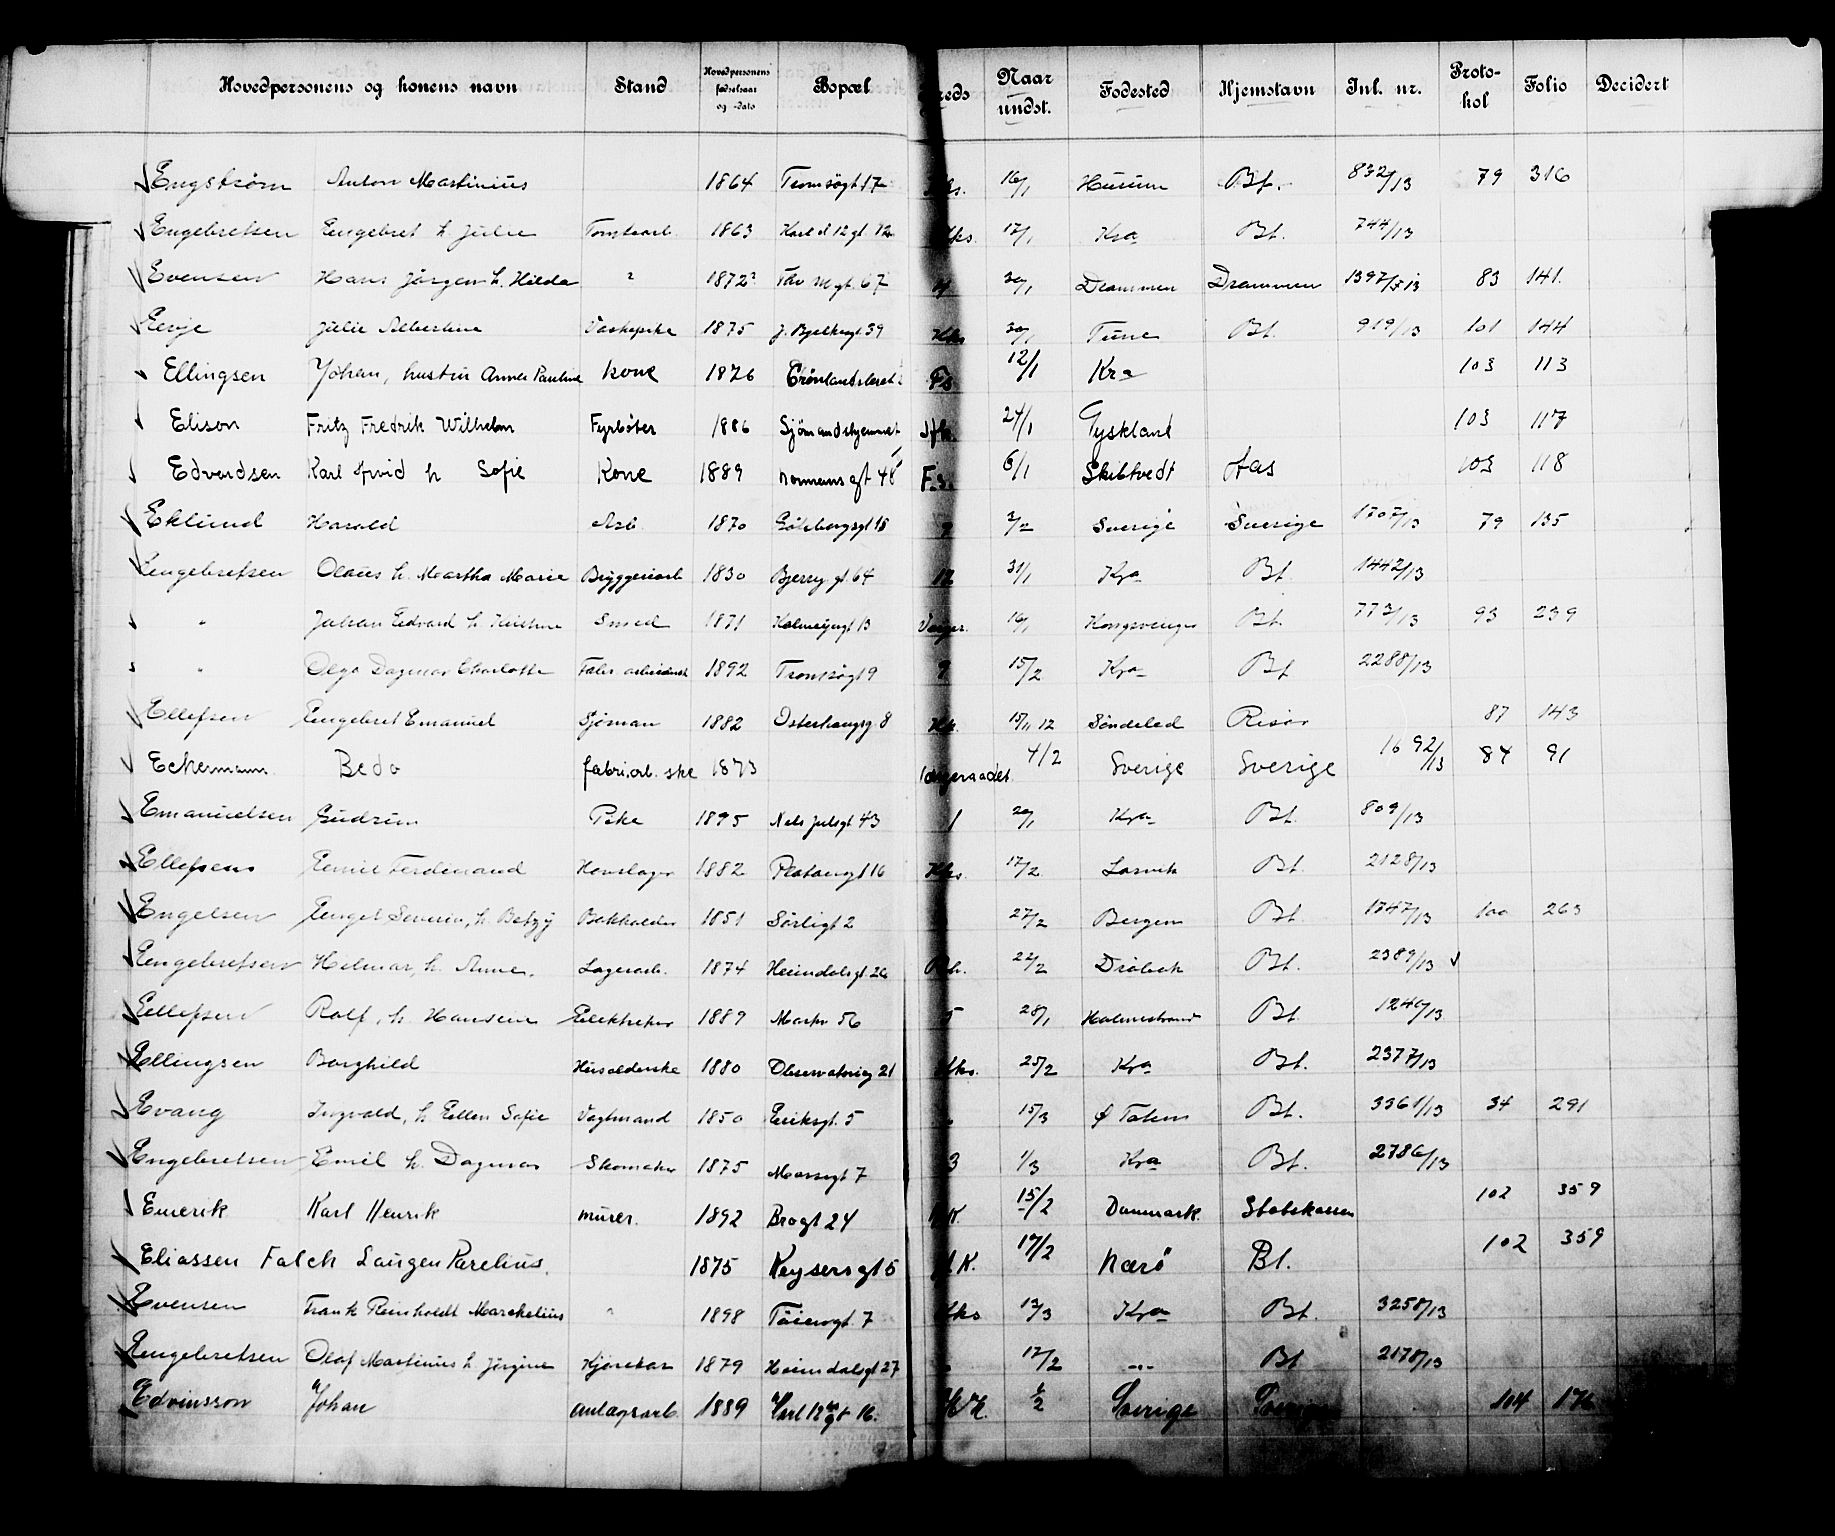 Hovedpersonens og konens navn Stand Hovedpersonens fødselsaar og -dato Bopæl Kreds Naar undst. Fødested Hjemstavn Inl. nr. Protokol Folio Decidert
Engstrøm Anton Martinius 1864 Tromsøgt 17 Hks. 16/1 Husum Bt. 832/13 79 316
Engebretsen Engebret h. Julie Tomtearb. 1863 Karl d 12 gt. 12 Hks. 17/1 Kra Bt. 744/13
Evensen Hans Jørgen h. Hilda " 1872 Thv M gt. 67 30/1 Drammen Drammen 1397/13 83 141.
Julie Albertine Vaskepike 1875 J. Bjelkesgt 39 Hks 30/1 Tune Bt. 919/13 101 144
Ellingsen Johan, hustru Anna Pauline kone 1876 Grønlandsleret Fs. 12/1 Kra 103 113
Elison Fritz Fredrik Wilhelm Fyrbøter 1886 Sjømandshjemmet 24/1 Tyskland 103 117
Edvardsen Karl Arvid h Sofie Kone 1889 Normansgt 48 F.s. 6/1 Skibtvedt Aas 103 118
Eklund Harald Arb. 1870 Gøteborgsgt 18 9 3/2 Sverige Sverige 1707/13 79 135
Engebretsen Olaus h. Martha Marie Bryggeriarb 1830 Bjerreg. gt. 64 12 31/1 Kra Bt. 1442/13
" Johan Edvard h. Kristine Smed 1871 Holmensgt 13 16/1 Kongsvinger Bt. 773/13 93 239
" Olga Dagmar Charlotte Fabr. arbeiderske 1892 Tromsøgt 9 9 15/2 Kra Bt 2288/13
Ellefsen Engebret Emanuel Sjøman 1882 Osterhausg 8 Hk. 15/11 12 Søndeled Risør 87 143
Eckermann Beda fabr.arb. ske 1873 4/2 Sverige Sverige 1692/13 84 91
Emanuelsen Gudrun Pike 1895 Nels Julsgt 43 1 20/1 Kra Bt. 809/13
Ellefsen Emil Ferdinand Hovslager 1882 Platousgt 16 Hks. 17/2 Larvik Bt. 2128/13
Engelsen Engel Severin, h. Betzy Bokholder 1851 Sørligt 2 27/2 Bergen Bt. 1747/13 100 263
Engebretsen Hilmar, h. Anne. Lagerarb. 1874 Heimdalsgt 26 22/2 Drøbak Bt. 2389/13
Ellefsen Rolf, h. Hansine Elektriker 1889 Markv 56 5 28/1 Holmestrand Bt. 1240/13
Ellingsen Borghild Husholderske 1880 Observatorieg 21 Hks. 25/2 Kra Bt. 2377/13
Evang Ingvald, h. Ellen Sofie Vagtmand 1850 Eriksgt. 5 15/3 Ø Toten Bt. 3361/13 34 291
Engebretsen Emil h. Dagmar Skomaker 1875 Mossegt 7 3 1/3 Kra Bt. 2786/13
Emerik Karl Henrik murer. 1892 Brogt 24 K. 15/2 Danmark. Statskassen 102 359
Eliassen Falch Laugen Parelius. 1875 Keysersgt 5 H.K. 17/2 Nærø Bt. 102 359
Evensen Frank Reinholdt Marchelius " 1898 Tøiengt. 7 Hks 17/3 Kra Bt. 3258/13
Engebretsen Olaf Martinius h. Jørgine Kjørekar 1879 Heimdalsgt 27 17/2 Bt 2178/13
Edvinsson Johan anlægsarb. 1889 Karl 12te gt 16. H.K. 1/2 Sverige Sverige 104 176